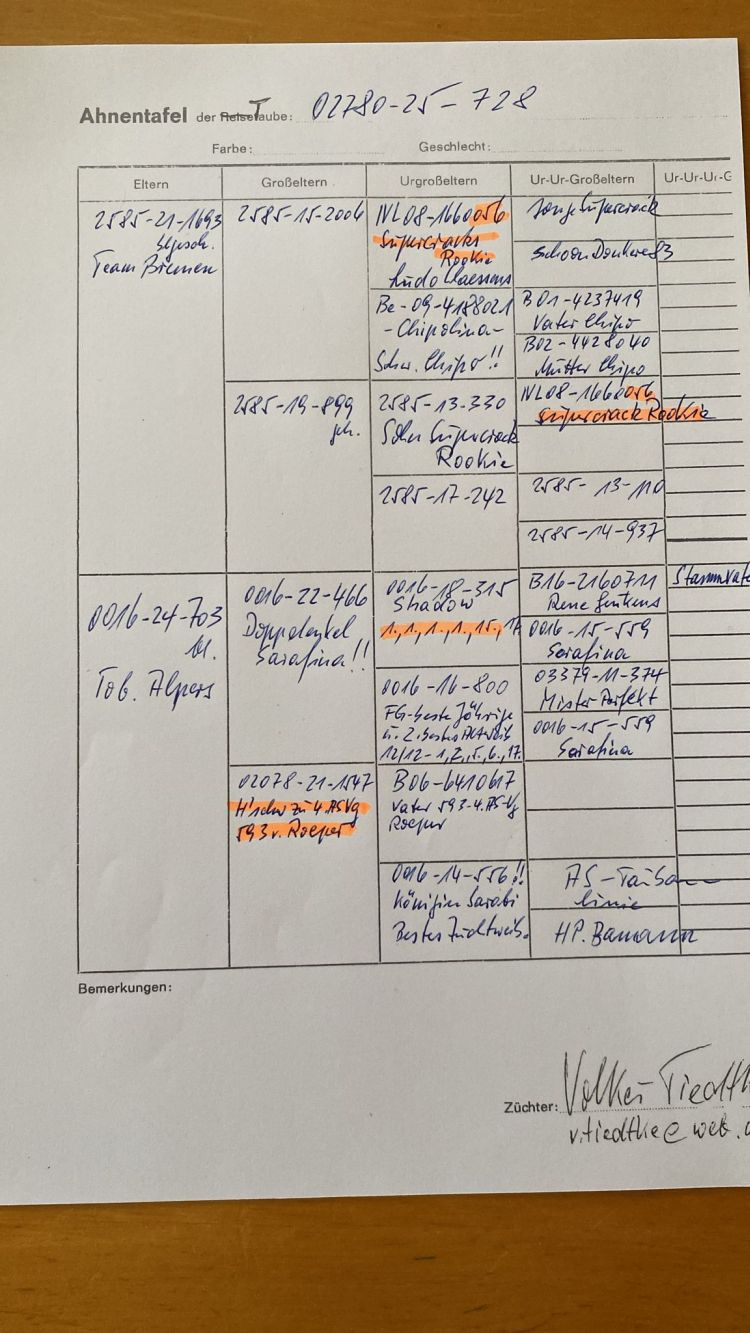 Ahnentafel der Reise T aube: 02780-25-728
Farbe: Geschlecht:
Eltern Großeltern Urgroßeltern Ur-Ur-Großeltern Ur-Ur-Ur-G
2585-21-1693
Team Bremen
2585-15-2006
NL08-1660056
Supercracks
Rookie
Ludo Claessens
Be-09-4188021
-Chipolina-
Schw. Chipo!!
Jonge Supercrack
Schoon Donkere 83
B01-4237419
Vater Chipo
B02-4428040
Mutter Chipo
2585-19-899
geh.
2585-13-330
Sohn Supercrack
Rookie
2585-17-242
NL08-1660056
Supercrack Rookie
2585-13-110
2585-14-937
0016-24-703
bl.
Tob. Alpers
0016-22-466
Doppelenkel
Sarafina!!
0016-18-315
Shadow
1., 1., 1., 1., 15., 17
0016-16-800
FG-beste Jährige
u. 2. bestes Altweib
12/12-1., 2., 5., 6., 17.
B16-2160711
Rene
0016-15-559
Sarafina
03379-11-374
Mister Perfekt
0016-15-559
Sarafina
Stammvate
02078-21-1547
H'schw zu 4. AS Vg
593 v. Roeper
B06-6410617
Vater 593-4. AS-Vg
Roeper
0016-14-556!!
Königin Sarabi
Bestes Zuchtweib.
AS-
Linie
HP. Bamann
Bemerkungen:
Züchter: Volker Tiedtk
v.tiedtke@web.d